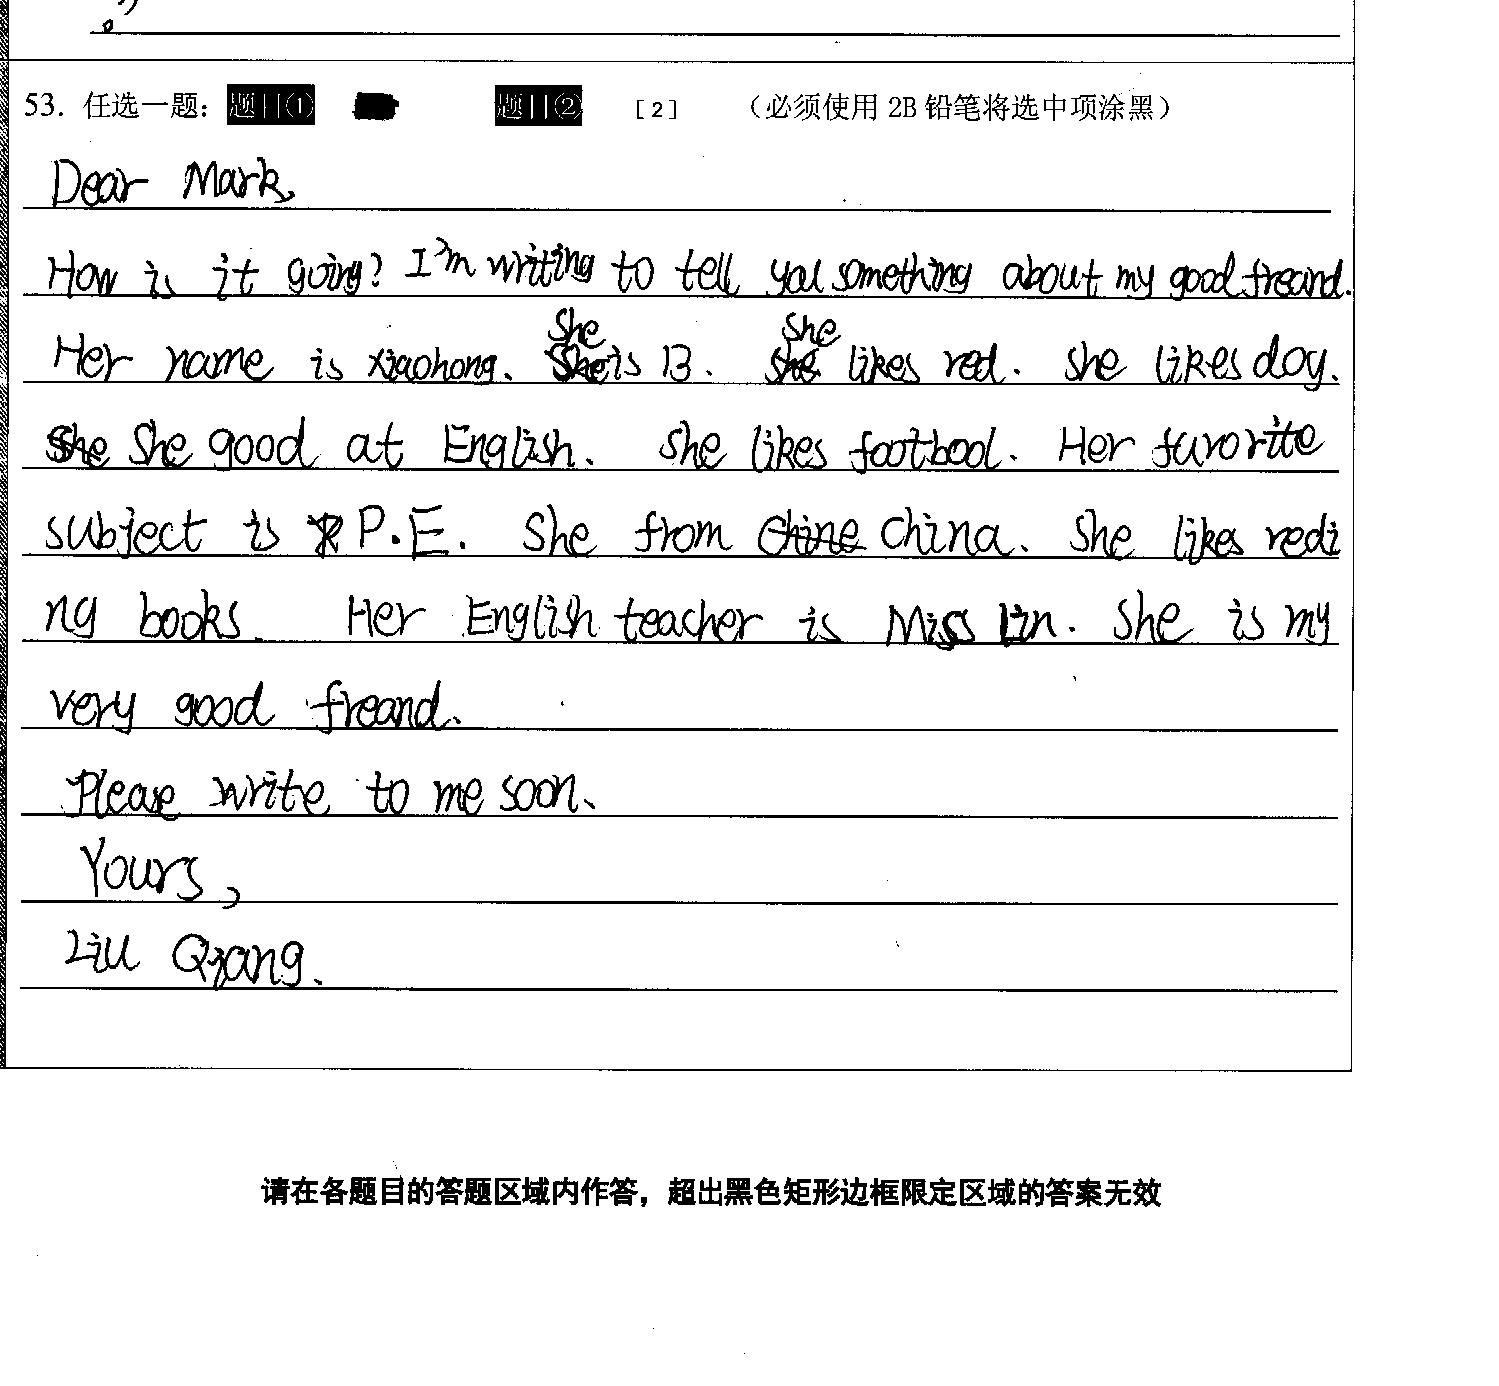 53. 任选一题: 题目① 题目② [2] （必须使用 2B 铅笔将选中项涂黑）
Dear Mark,
How is it going? I'm writing to tell you something about my good freand.
Her name is Xiaohong. She is 13. she likes red. she likes dog.
She good at English. she likes footbool. Her favorite
subject is P.E. She from China. She likes redi
ng books. Her English teacher is Miss Lin. She is my
very good freand.
Please write to me soon.
Yours,
Liu Qiang.
请在各题目的答题区域内作答，超出黑色矩形边框限定区域的答案无效